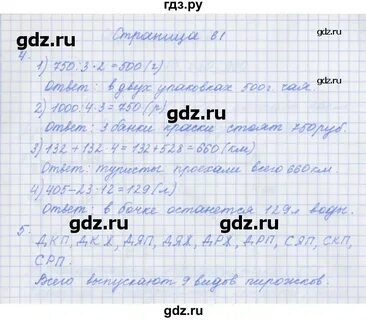 гдз.ру
Страница 81
4.
1) 750:3·2=500(г)
Ответ: в двух упаковках 500г. чая.
2) 1000:4·3=750(р)
Ответ: 3 банки краски стоят 750руб.
3) 132+132·4=132+528=660(км)
Ответ: туристы проехали всего 660км.
4) 405-23·12=129(л)
Ответ: в бочке останется 129л воды.
5.
ДКП, ДКХ, ДЯП, ДЯХ, ДРХ, ДРП, СЯП, СКП,
СРП.
Всего выпускают 9 видов пирожков.
gdz.ru
gdz.ru
gdz.ru
gdz.ru
gdz.ru
gdz.ru